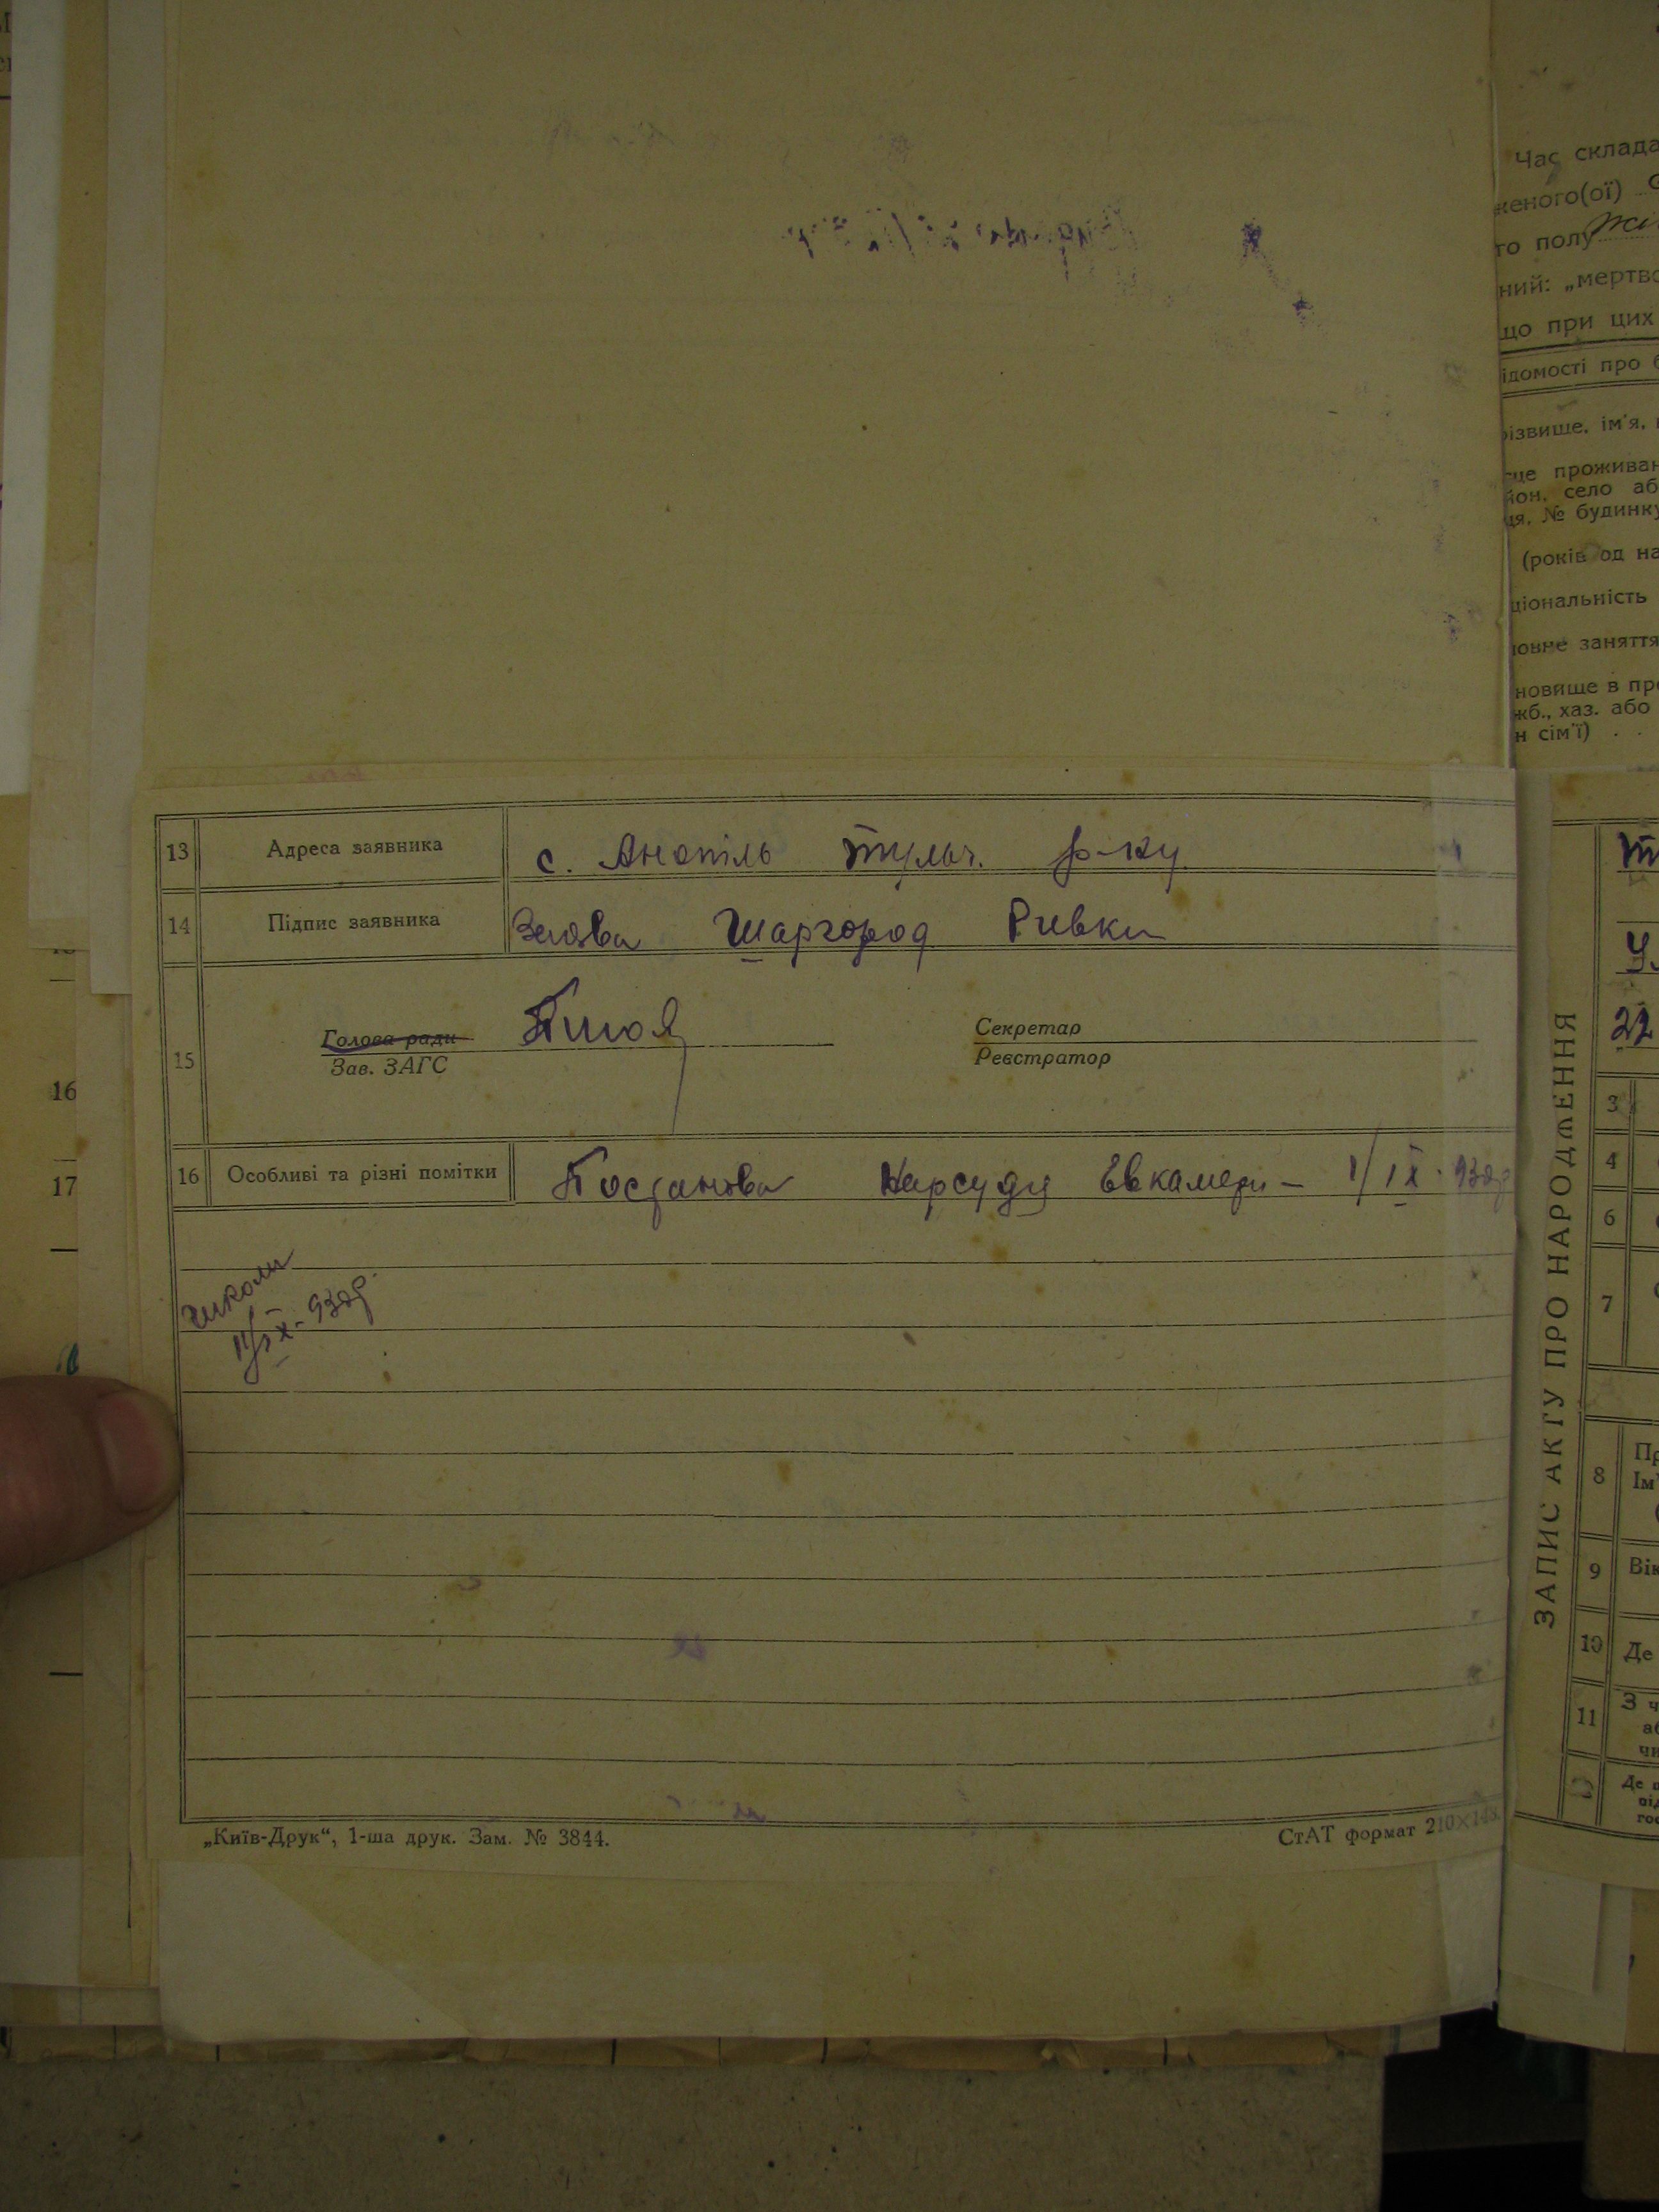 13 Адреса заявника с. Анопіль тульч. р-ну
14 Підпис заявника Заява Шаргород Ривки
15 Голова ради
Зав. ЗАГС
Секретар
Реєстратор
16 Особливі та різні помітки Постанова Нарсуду Евкамери – 1/IX - 93
11/IX - 93
„Київ-Друк“, 1-ша друк. Зам. № 3844.
СтАТ формат 210×148.
Час склада
женого(ої)
го полу
ний: „мертво
що при цих
ідомості про
різвище, ім'я,
сце проживан
йон, село аб
ця, № будинку
(років од на
ціональність
ловне заняття
новище в пр
жб., хаз. або
н сім'ї)
ЗАПИС АКТУ ПРО НАРОДЖЕННЯ
22
3
4
6
7
8
Ім'
9 Вік
10 Де
11 З ч
16
17